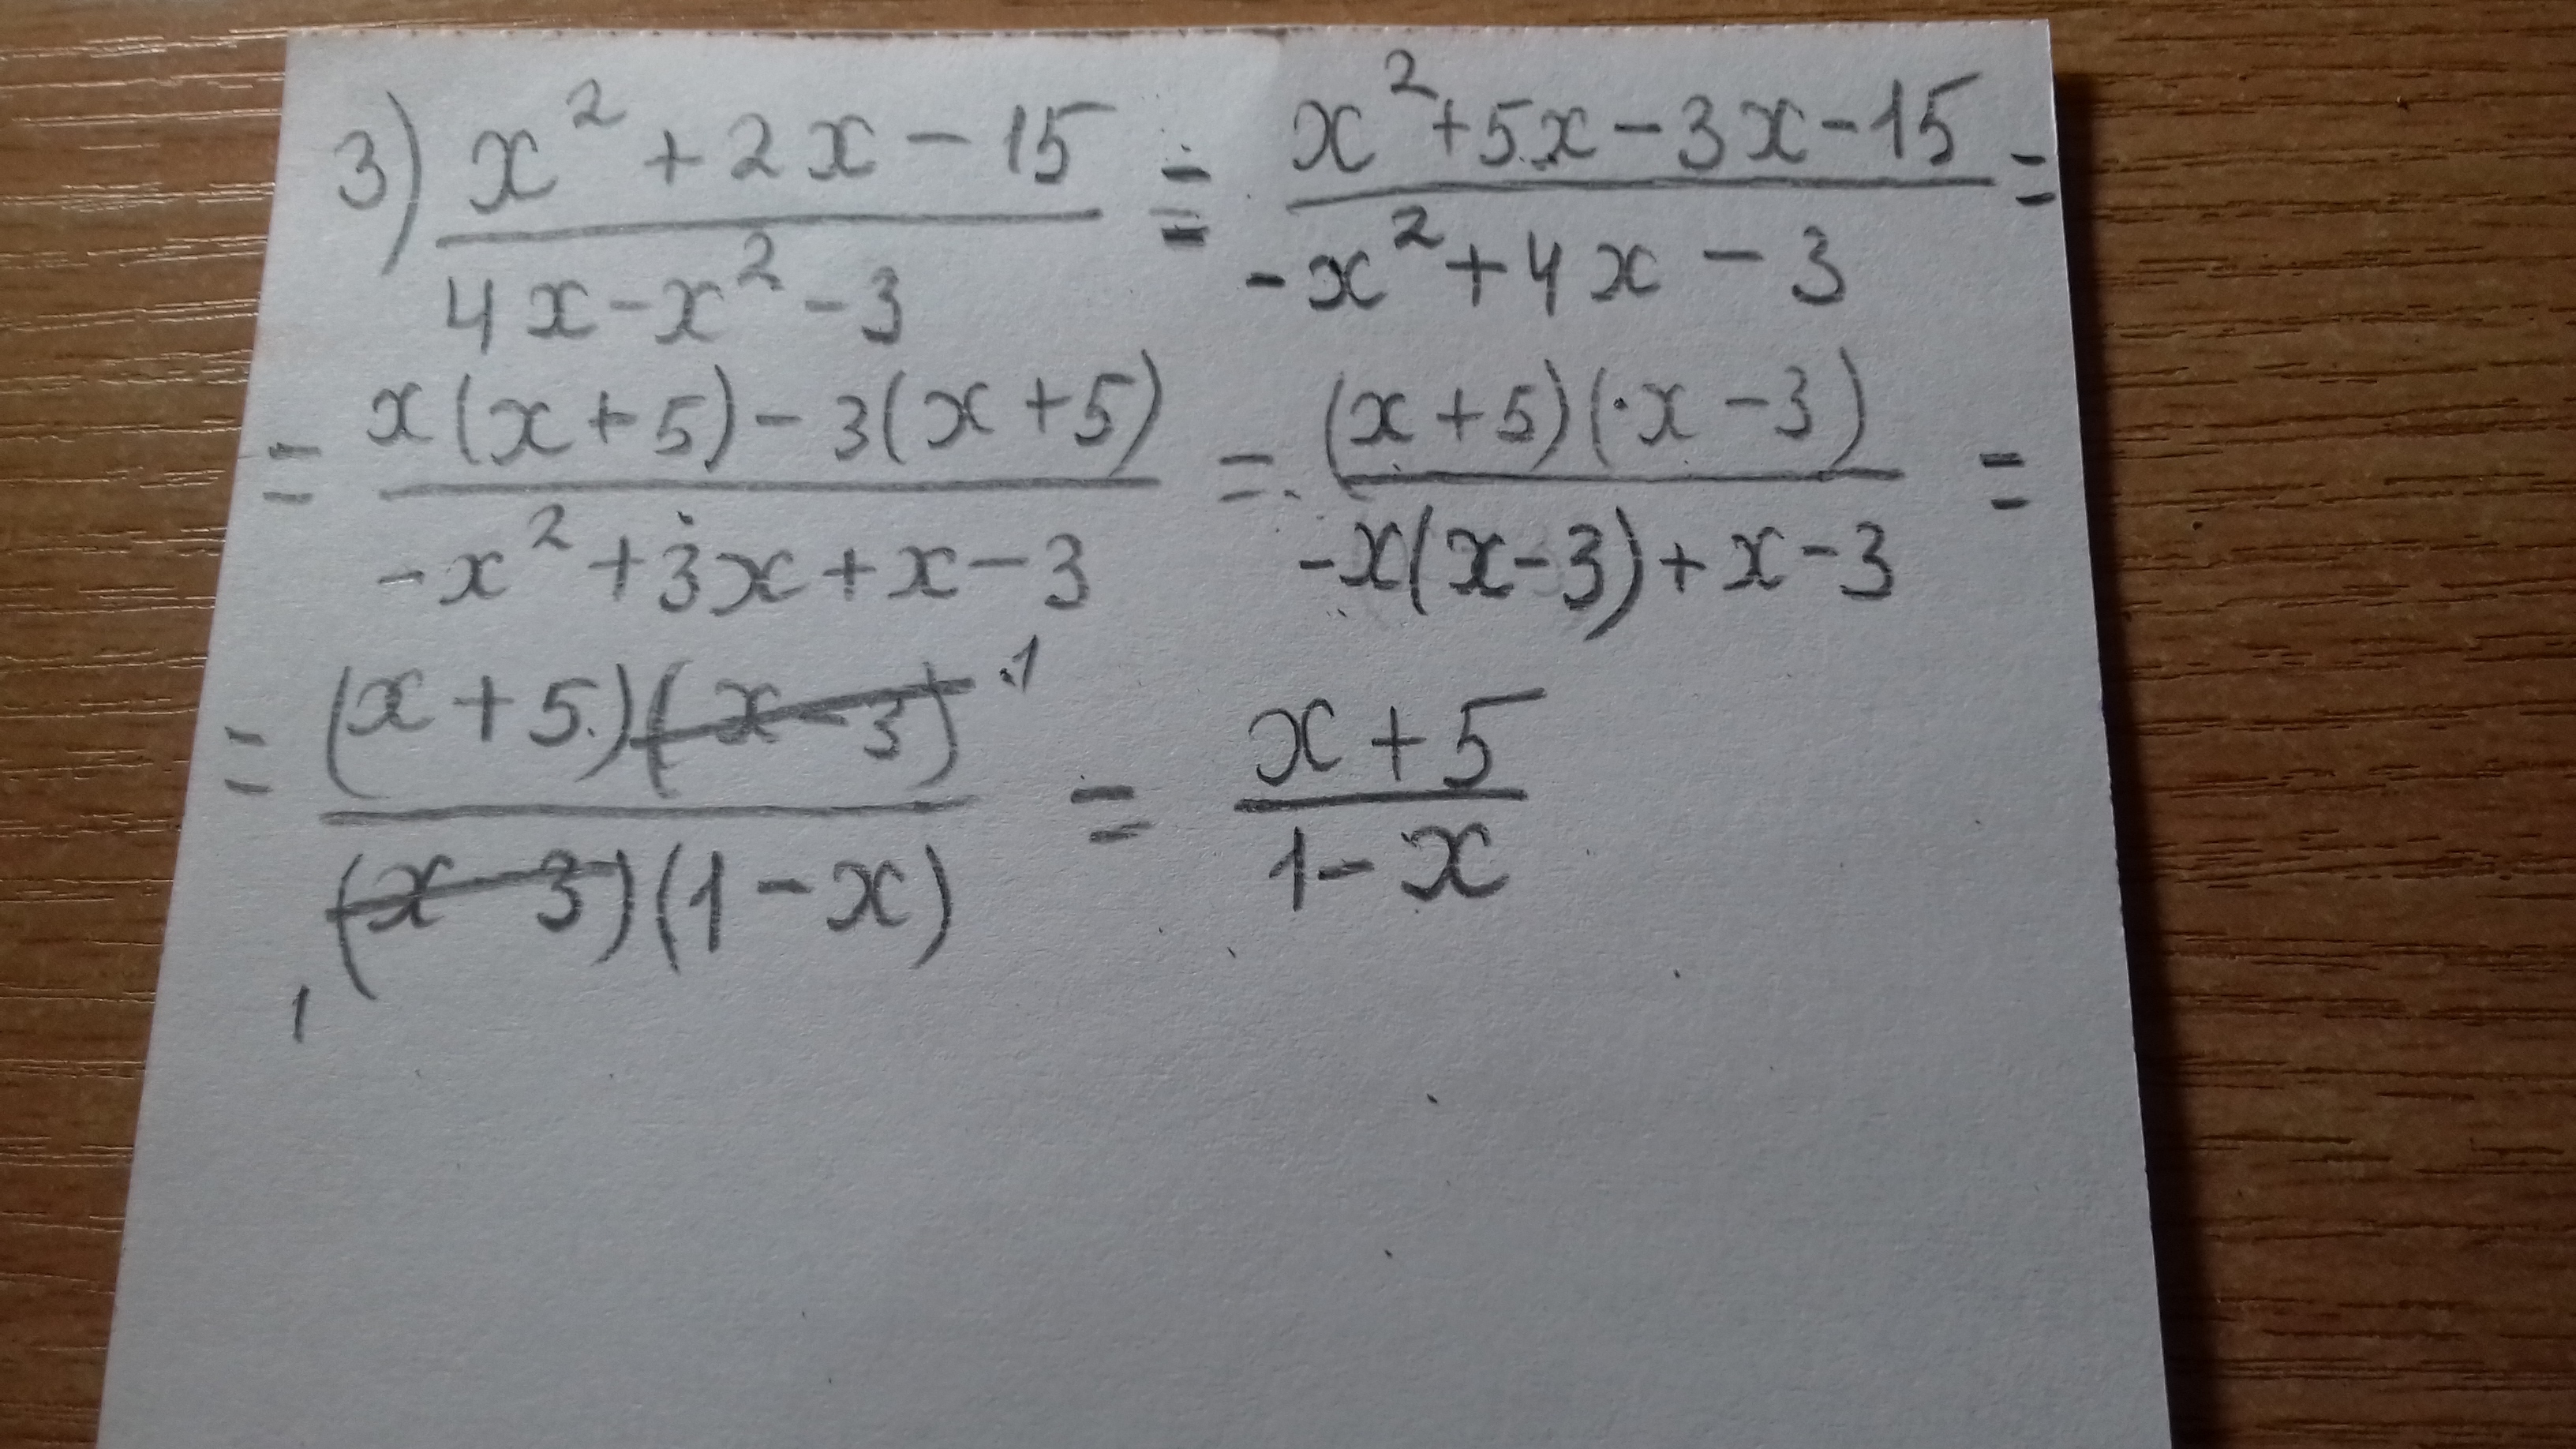 3) x² + 2x - 15 / 4x - x² - 3 = x² + 5x - 3x - 15 / -x² + 4x - 3 =
= x(x + 5) - 3(x + 5) / -x² + 3x + x - 3 = (x + 5)(x - 3) / -x(x - 3) + x - 3 =
= (x + 5)(x - 3) 1 / 1 (x - 3)(1 - x) = x + 5 / 1 - x